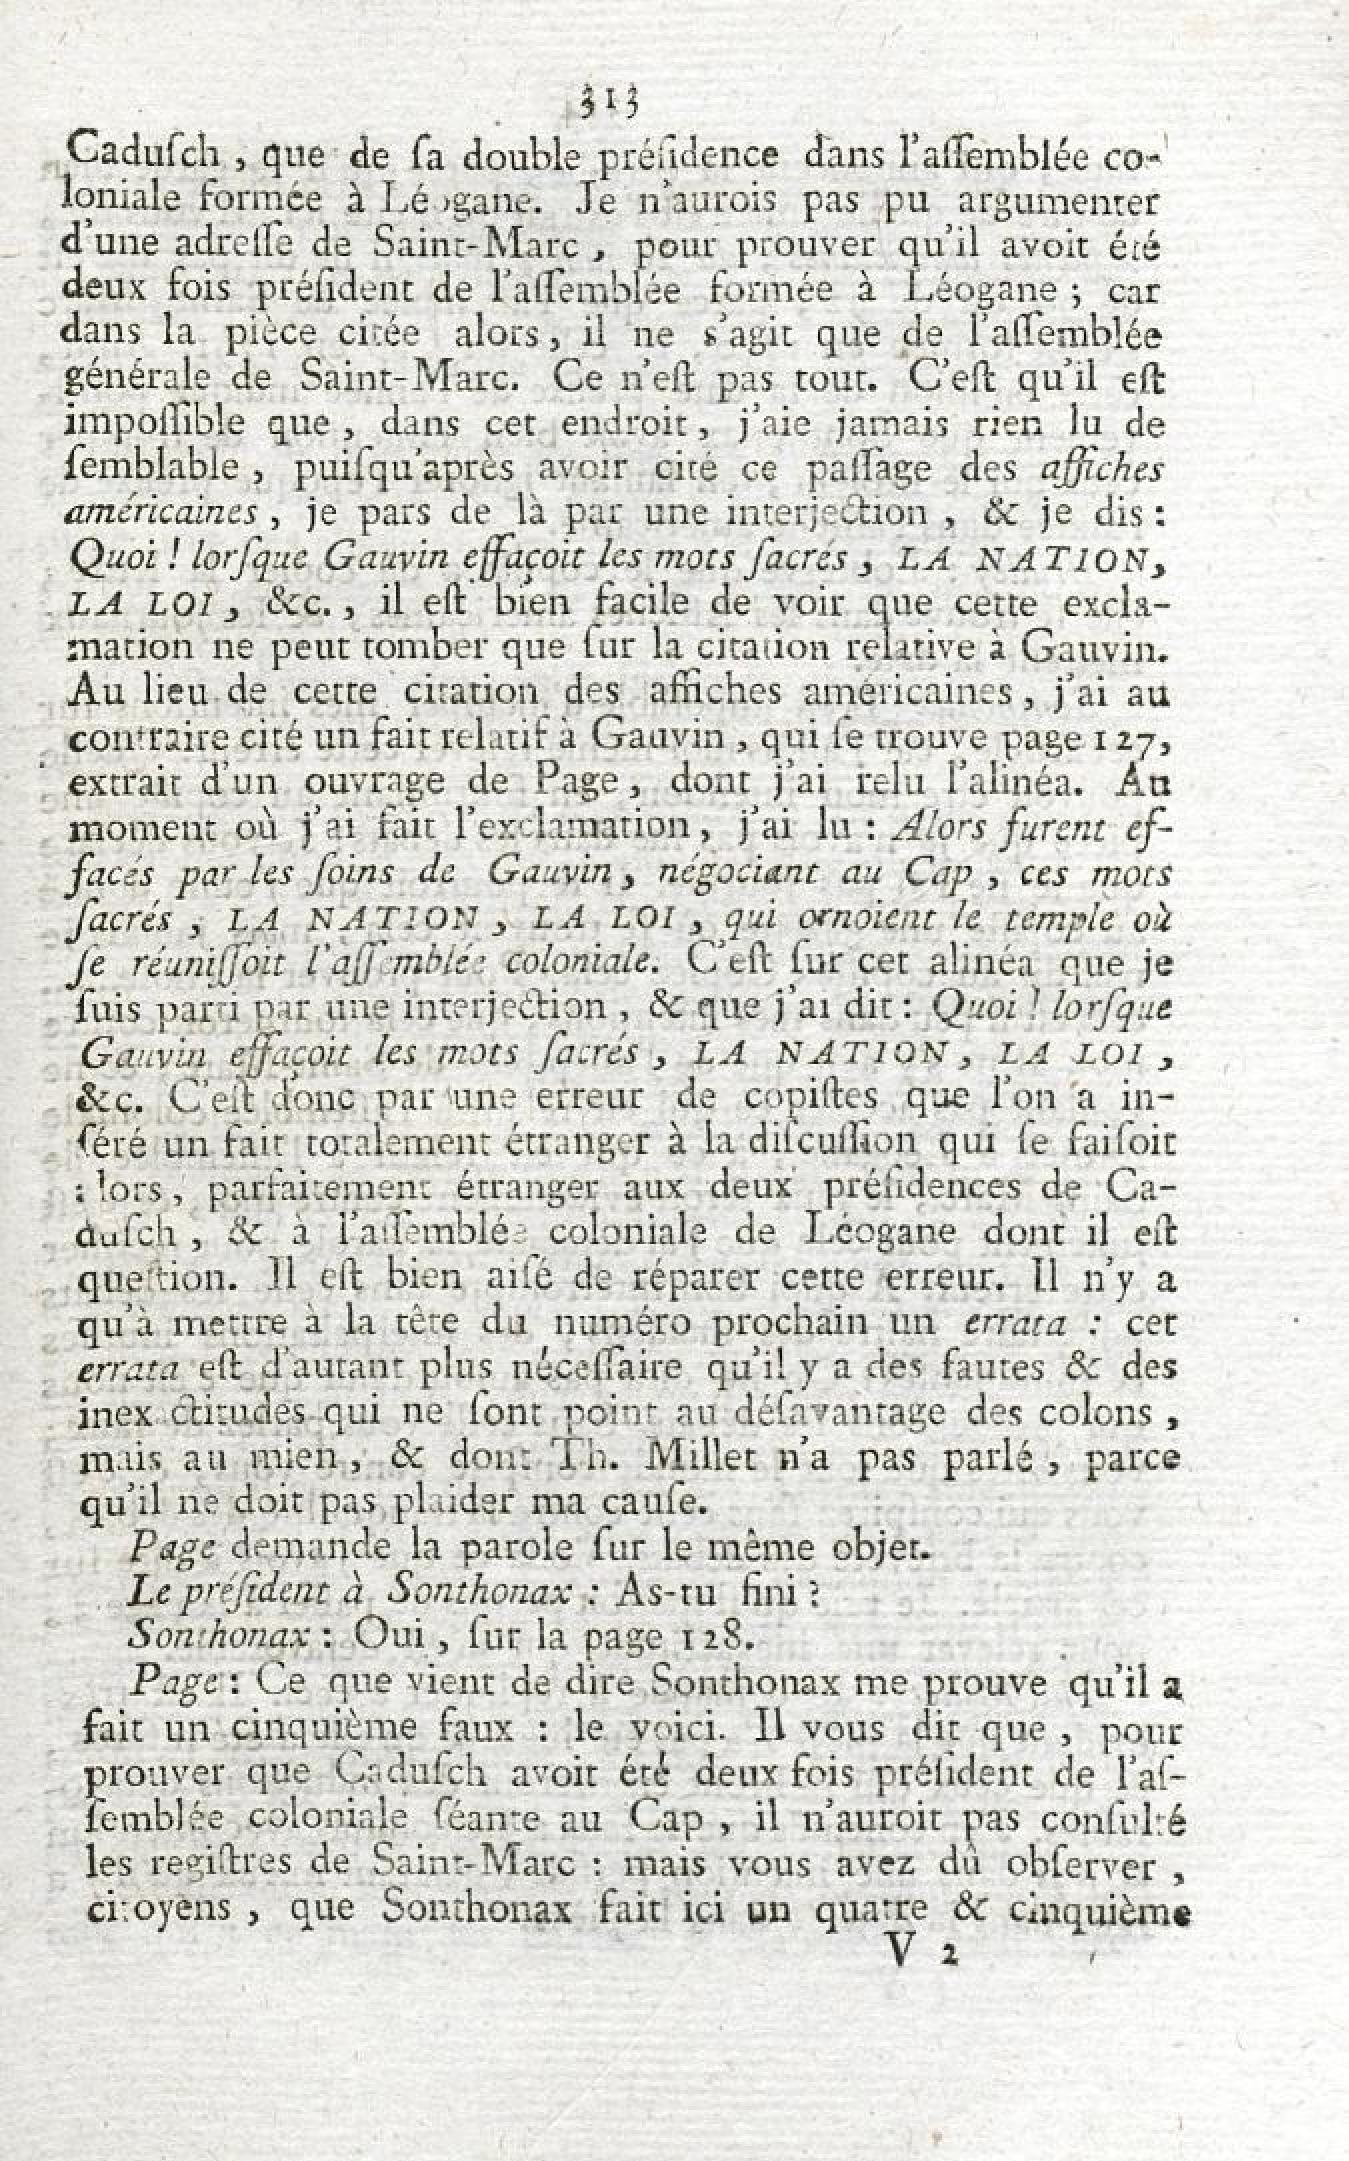 313
Caduſch, que de ſa double préſidence dans l'aſſemblée co-
loniale formée à Léogane. Je n'aurois pas pu argumenter
d'une adreſſe de Saint-Marc, pour prouver qu'il avoit été
deux fois préſident de l'aſſemblée formée à Léogane ; car
dans la pièce citée alors, il ne s'agit que de l'aſſemblée
générale de Saint-Marc. Ce n'eſt pas tout. C'eſt qu'il eſt
impoſſible que, dans cet endroit, j'aie jamais rien lu de
ſemblable, puiſqu'après avoir cité ce paſſage des affiches
américaines, je pars de là par une interjection, & je dis :
Quoi ! lorſque Gauvin effaçoit les mots ſacrés, LA NATION,
LA LOI, &c., il eſt bien facile de voir que cette excla-
mation ne peut tomber que ſur la citation relative à Gauvin.
Au lieu de cette citation des affiches américaines, j'ai au
contraire cité un fait relatif à Gauvin, qui ſe trouve page 127,
extrait d'un ouvrage de Page, dont j'ai relu l'alinéa. Au
moment où j'ai fait l'exclamation, j'ai lu : Alors furent ef-
facés par les ſoins de Gauvin, négociant au Cap, ces mots
ſacrés, LA NATION, LA LOI, qui ornoient le temple où
ſe réuniſſoit l'aſſemblée coloniale. C'eſt ſur cet alinéa que je
ſuis parti par une interjection, & que j'ai dit : Quoi ! lorſque
Gauvin effaçoit les mots ſacrés, LA NATION, LA LOI,
&c. C'eſt donc par une erreur de copiſtes que l'on a in-
ſéré un fait totalement étranger à la diſcuſſion qui ſe faiſoit
alors, parfaitement étranger aux deux préſidences de Ca-
duſch, & à l'aſſemblée coloniale de Léogane dont il eſt
queſtion. Il eſt bien aiſé de réparer cette erreur. Il n'y a
qu'à mettre à la tête du numéro prochain un errata : cet
errata eſt d'autant plus néceſſaire qu'il y a des fautes & des
inexactitudes qui ne ſont point au déſavantage des colons,
mais au mien, & dont Th. Millet n'a pas parlé, parce
qu'il ne doit pas plaider ma cauſe.
Page demande la parole ſur le même objet.
Le préſident à Sonthonax : As-tu fini ?
Sonthonax : Oui, ſur la page 128.
Page : Ce que vient de dire Sonthonax me prouve qu'il a
fait un cinquième faux : le voici. Il vous dit que, pour
prouver que Caduſch avoit été deux fois préſident de l'aſ-
ſemblée coloniale ſéante au Cap, il n'auroit pas conſulté
les regiſtres de Saint-Marc : mais vous avez dû obſerver,
citoyens, que Sonthonax fait ici un quatre & cinquième
V 2